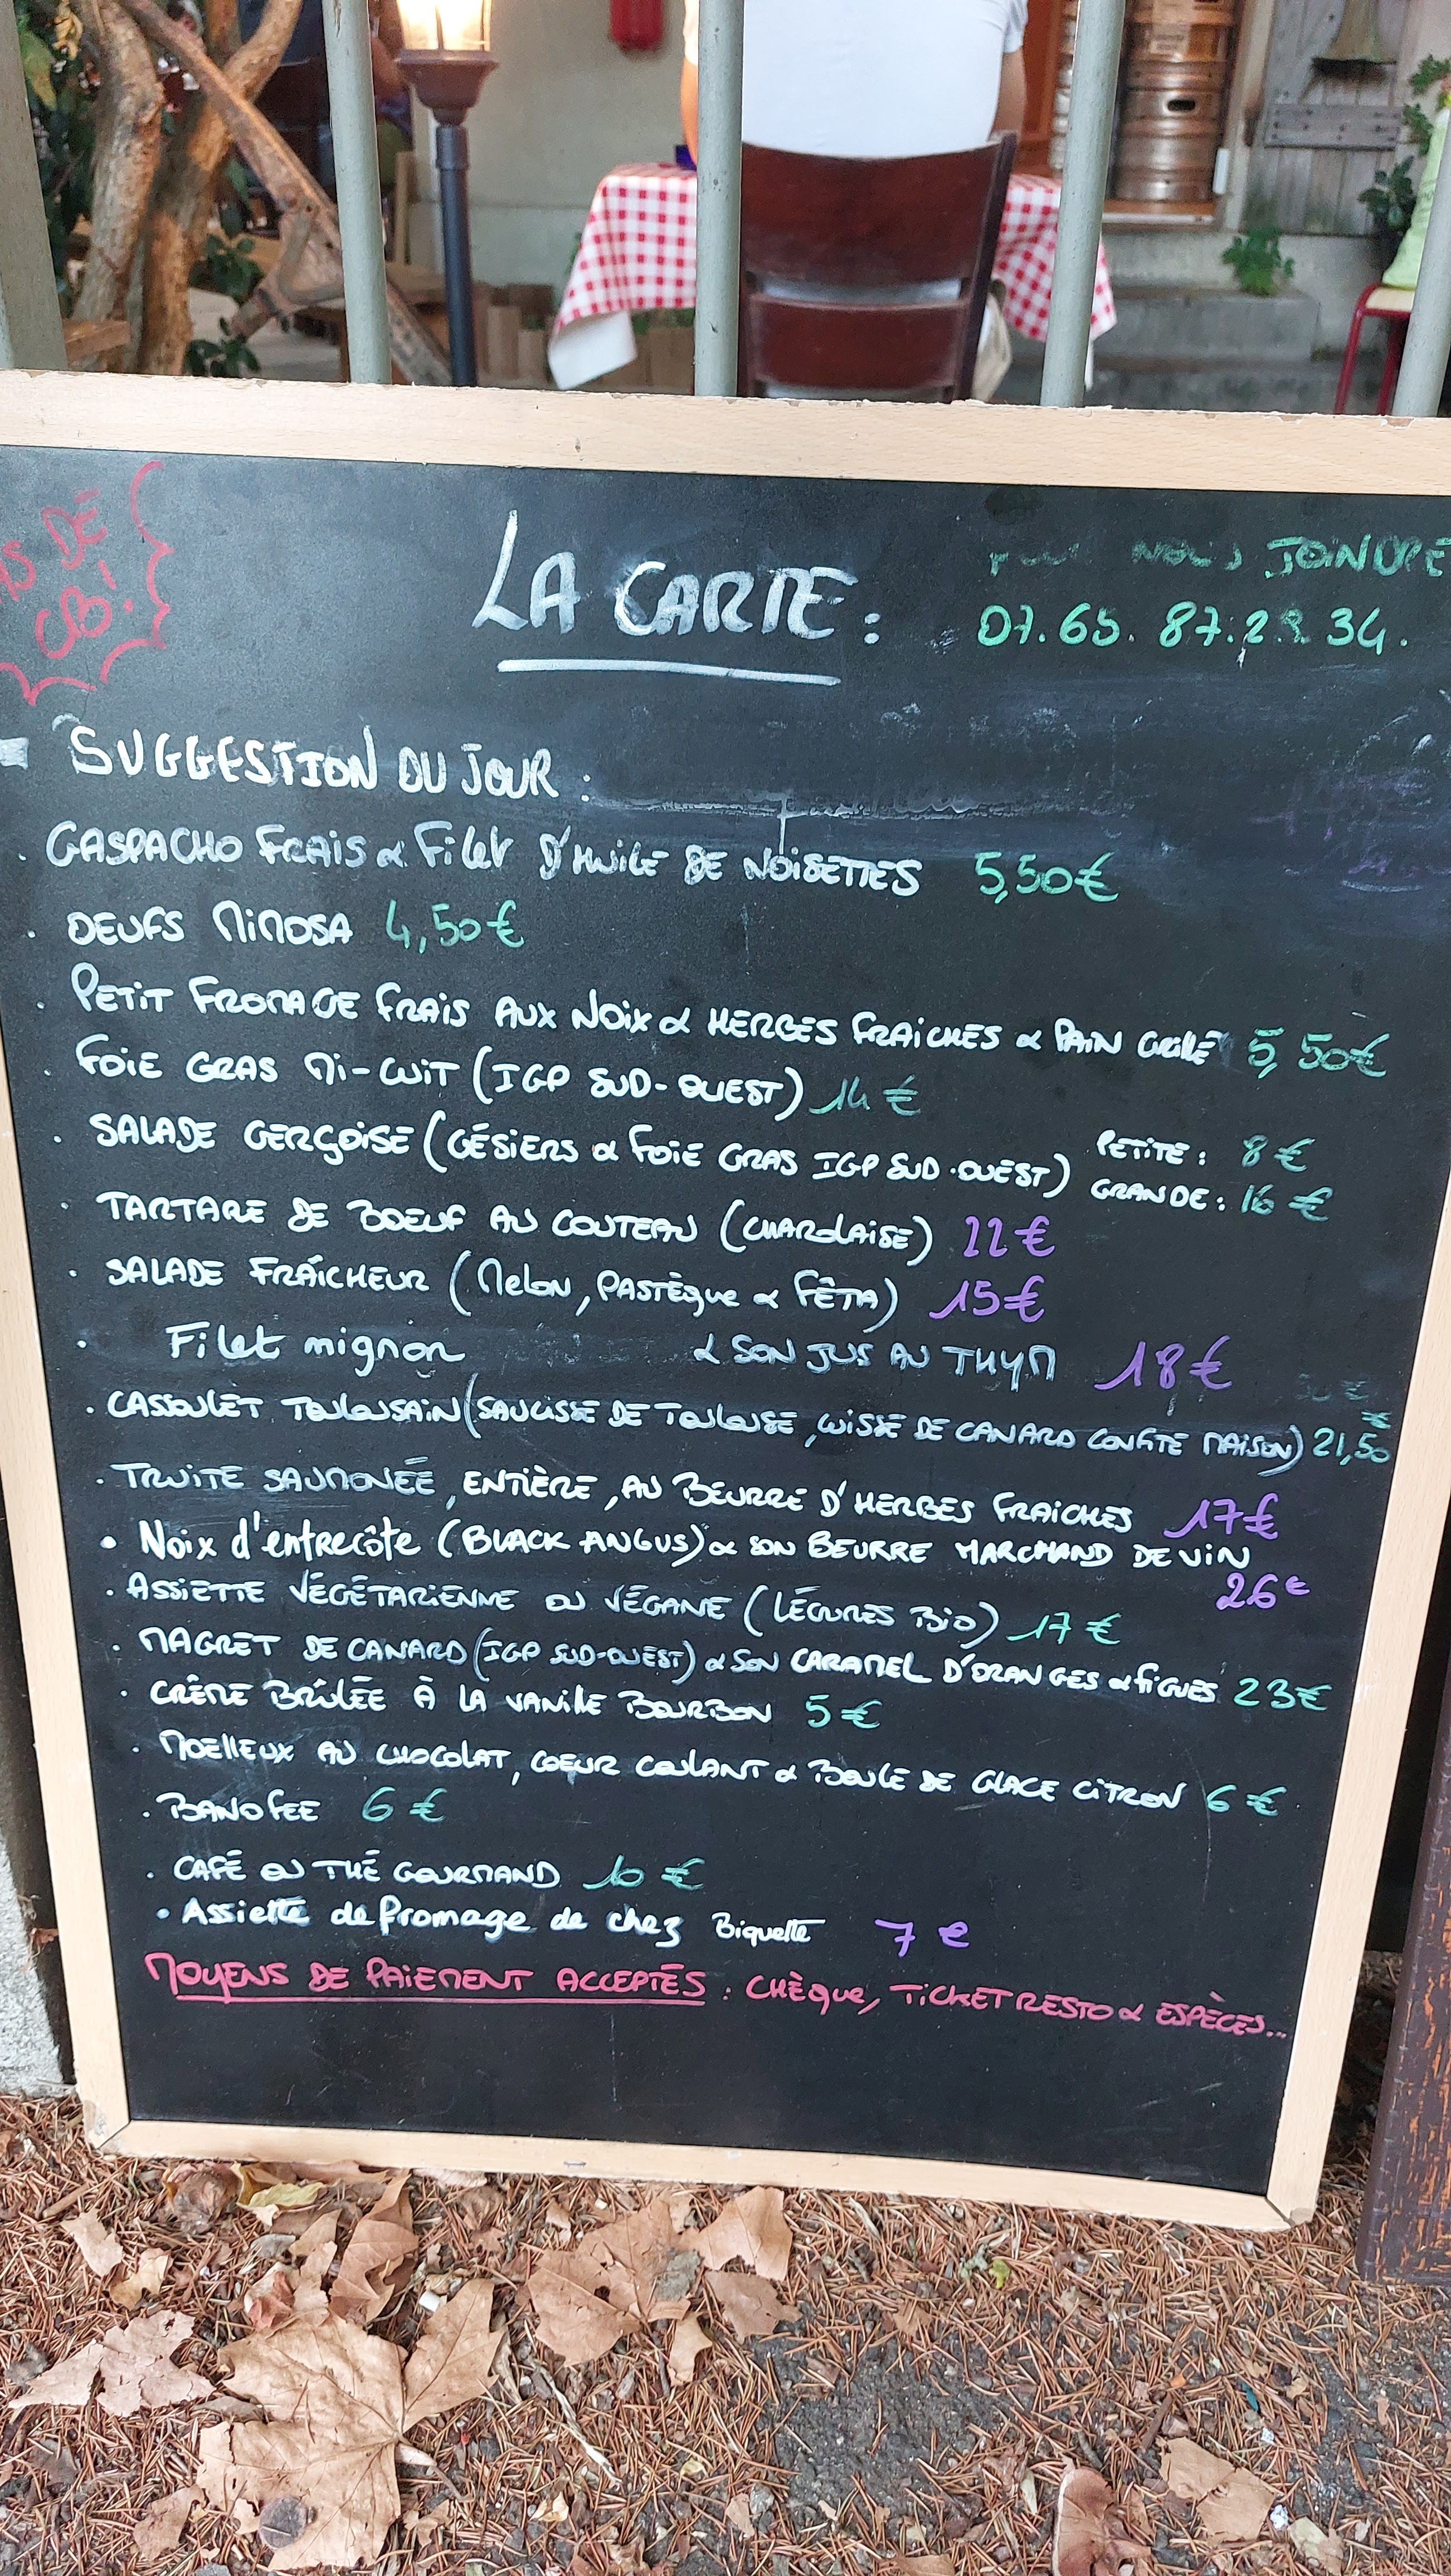 DE
CB!
LA CARTE :
NOUS JOINDRE
SUGGESTION DU JOUR :
. GASPACHO FRAIS & Filet D'HUILE DE NOISETTES 5,50€
. OEUFS MIMOSA 4,50€
. PETIT FROMAGE FRAIS AUX NOIX & HERBES FRAICHES & PAIN GRILLÉ 5,50€
. FOIE GRAS MI-CUIT (IGP SUD-OUEST) 14€
. SALADE GERÇOISE (GÉSIERS & FOIE GRAS IGP SUD-OUEST) PETITE : 8€
GRANDE : 16€
. TARTARE DE BOEUF AU COUTEAU (CHAROLAISE) 22€
. SALADE FRAÎCHEUR (Melon, PASTÈque & FÊTA) 15€
. Filet mignon & SON JUS AU THYM 18€
. CASSOULET TOULOUSAIN (SAUCISSE DE TOULOUSE, CUISSE DE CANARD CONFITE MAISON) 21,50€
. TRUITE SAUMONÉE, ENTIÈRE, AU BEURRE D'HERBES FRAICHES 17€
• Noix d'entrecôte (BLACK ANGUS) & SON BEURRE MARCHAND DE VIN
26€
. ASSIETTE VÉGÉTARIENNE OU VÉGANE (LÉGUMES BIO) 17€
. MAGRET DE CANARD (IGP SUD-OUEST) & SON CARAMEL D'ORANGES & FIGUES 23€
. CRÈME BRÛLÉE À LA VANILLE BOURBON 5€
. MOELLEUX AU CHOCOLAT, COEUR COULANT & BOULE DE GLACE CITRON 6€
. BANOFEE 6€
. CAFÉ OU THÉ GOURMAND 10€
• Assiette de fromage de chez Biquette 7€
MOYENS DE PAIEMENT ACCEPTÉS : CHÈque, TICKET RESTO & ESPÈCES...